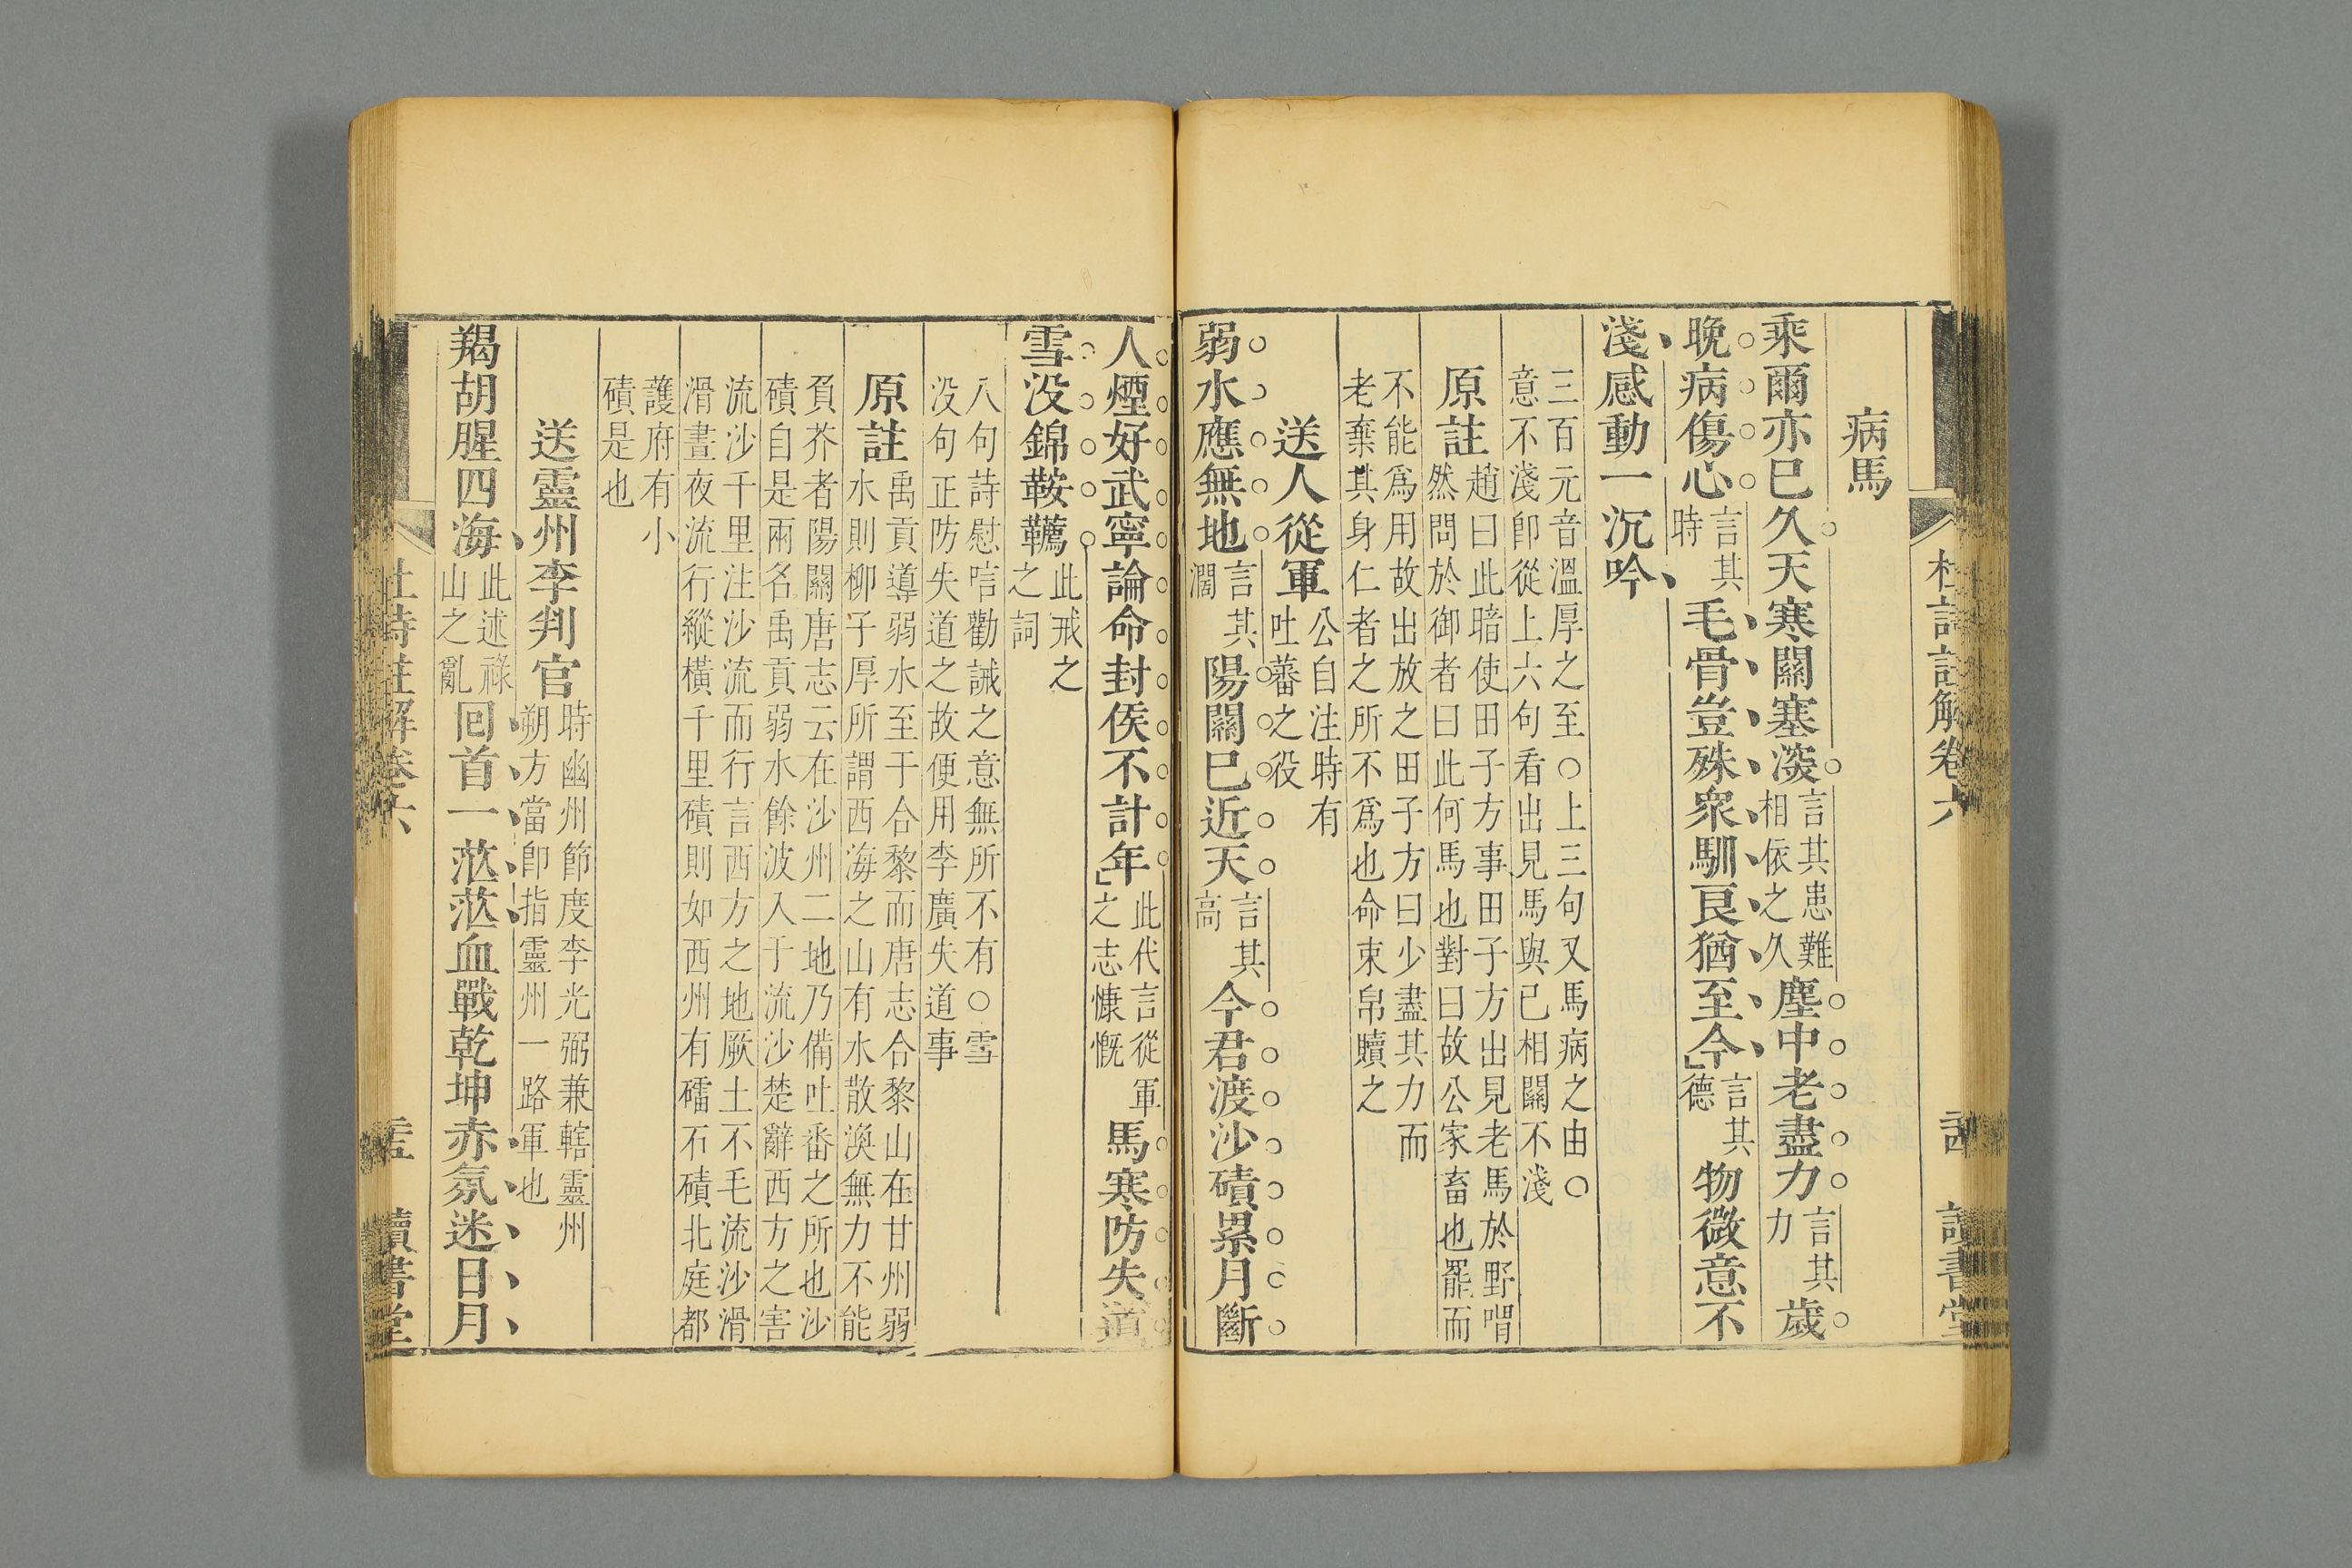 病馬
乘爾亦已久天寒關塞深言其患難相依之久塵中老盡力言其力歲
晚病傷心言其時毛骨豈殊衆馴良猶至今言其德物微意不
淺感動一沉吟
三百元音溫厚之至○上三句又馬病之由○
意不淺卽從上六句看出見馬與已相關不淺
原註趙曰此暗使田子方事田子方出見老馬於野喟
然問於御者曰此何馬也對曰故公家畜也罷而
不能爲用故出放之田子方曰少盡其力而
老棄其身仁者之所不爲也命束帛贖之
送人從軍公自注時有吐蕃之役
弱水應無地言其濶陽關已近天言其高今君渡沙磧累月斷
人煙好武寧論命封侯不計年此代言從軍之志慷慨馬寒防失道
雪没錦鞍韉此戒之之詞
八句詩慰唁勸誡之意無所不有○雪
没句正防失道之故便用李廣失道事
原註禹貢導弱水至于合黎而唐志合黎山在甘州弱
水則柳子厚所謂西海之山有水散渙無力不能
負芥者陽關唐志云在沙州二地乃備吐番之所也沙
磧自是兩名禹貢弱水餘波入于流沙楚辭西方之害
流沙千里注沙流而行言西方之地厥土不毛流沙滑
滑晝夜流行縱橫千里磧則如西州有礌石磧北庭都
護府有小
磧是也
送靈州李判官時幽州節度李光弼兼轄靈州朔方當卽指靈州一路軍也
羯胡腥四海此述祿山之亂回首一茫茫血戰乾坤赤氛迷日月
杜詩註解卷六
讀書堂